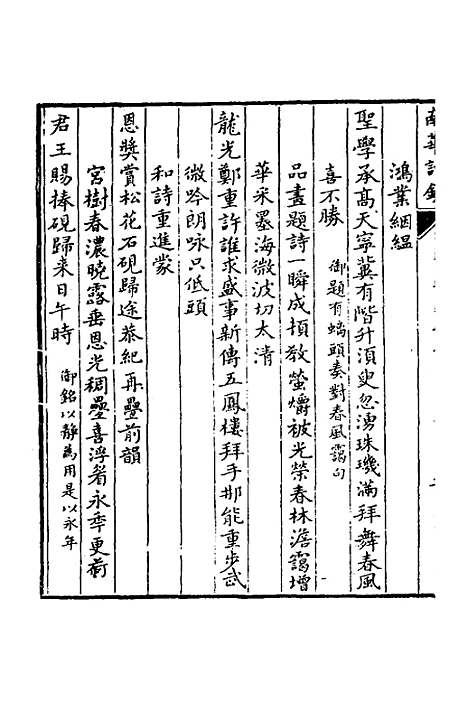 南華詩鈔
鴻業綑緼
聖學承高天寧冀有階升須臾忽湧珠璣滿拜舞春風
喜不勝 御題有螭頭奏對春風靄句
品畫題詩一瞬成頓教螢爝被光榮春林澹靄增
華采墨海微波切太清
龍光鄭重許誰求盛事新傳五鳳樓拜手那能重步武
微吟朗咏只低頭
和詩重進蒙
恩獎賞松花石硯歸途恭紀再疊前韻
宮樹春濃曉露垂恩光稠疊喜浮眉永年更荷
君王賜捧硯歸來日午時 御銘以靜為用是以永年